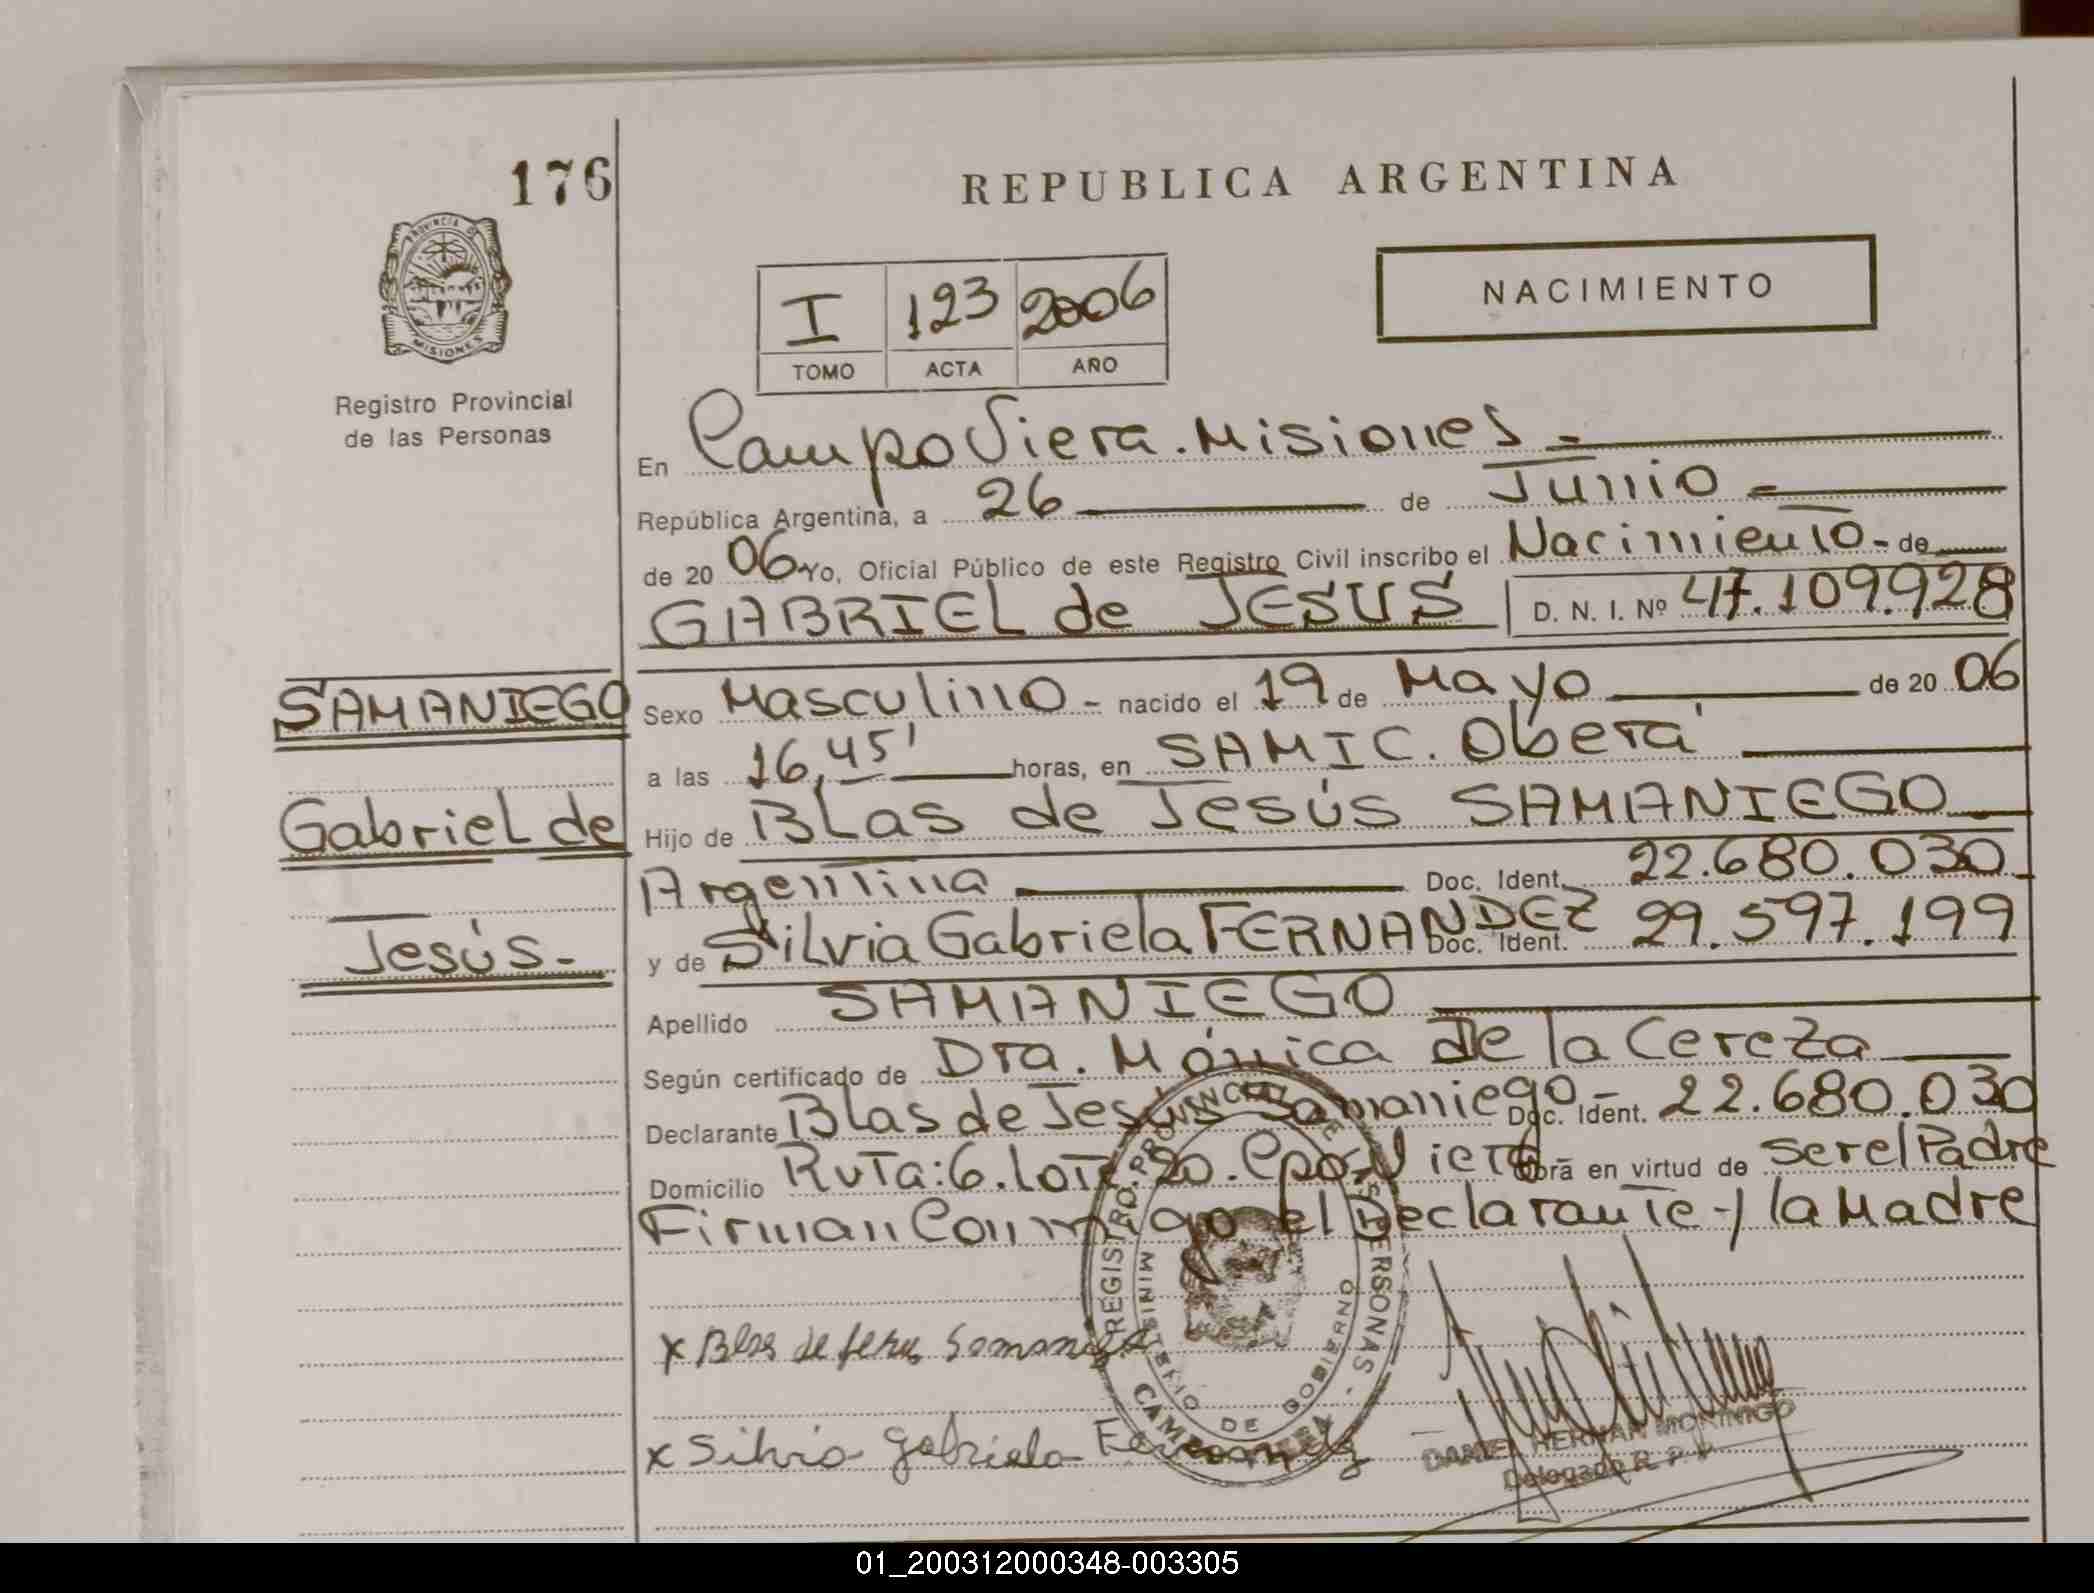 176
REPUBLICA ARGENTINA
PROVINCIA DE
MISIONES
Registro Provincial
de las Personas
I 123 2006
TOMO ACTA AÑO
NACIMIENTO
En Campo Viera. Misiones.-
República Argentina, a 26 de Junio -
de 20 06 Yo, Oficial Público de este Registro Civil inscribo el Nacimiento - de
GABRIEL de JESUS D. N. I. Nº 47.109.928
SAMANIEGO
Gabriel de
Jesús.-
Sexo Masculino - nacido el 19 de Mayo de 20 06
a las 16,45' horas, en SAMIC. Oberá
Hijo de BLas de Jesús SAMANIEGO
Argentina Doc. Ident. 22.680.030
y de Silvia Gabriela FERNANDEZ Doc. Ident. 29.597.199
Apellido SAMANIEGO
Según certificado de Dra. Mónica De la Cereza
Declarante BLas de Jesús Samaniego - Doc. Ident. 22.680.030
Domicilio Ruta: 6. Lote. 20. Cpo. Viera Obra en virtud de ser el Padre
Firman Conmigo el Declarante y la Madre
REGISTRO PROVINCIAL DE LAS PERSONAS -
MINISTERIO DE GOBIERNO
CAMPO VIERA
x Blas de Jesus Samaniego
x Silvia Gabriela Fernandez
DANIEL HERNAN MORINIGO
Delegado R. P. P.
01_200312000348-003305